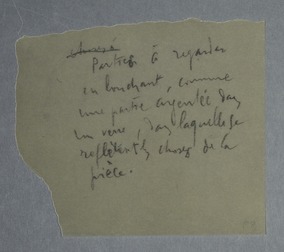 Partie à regarder
en louchant, comme
une partie argentée dans
un verre, dans laquelle se
reflètent les choses de la
pièce.